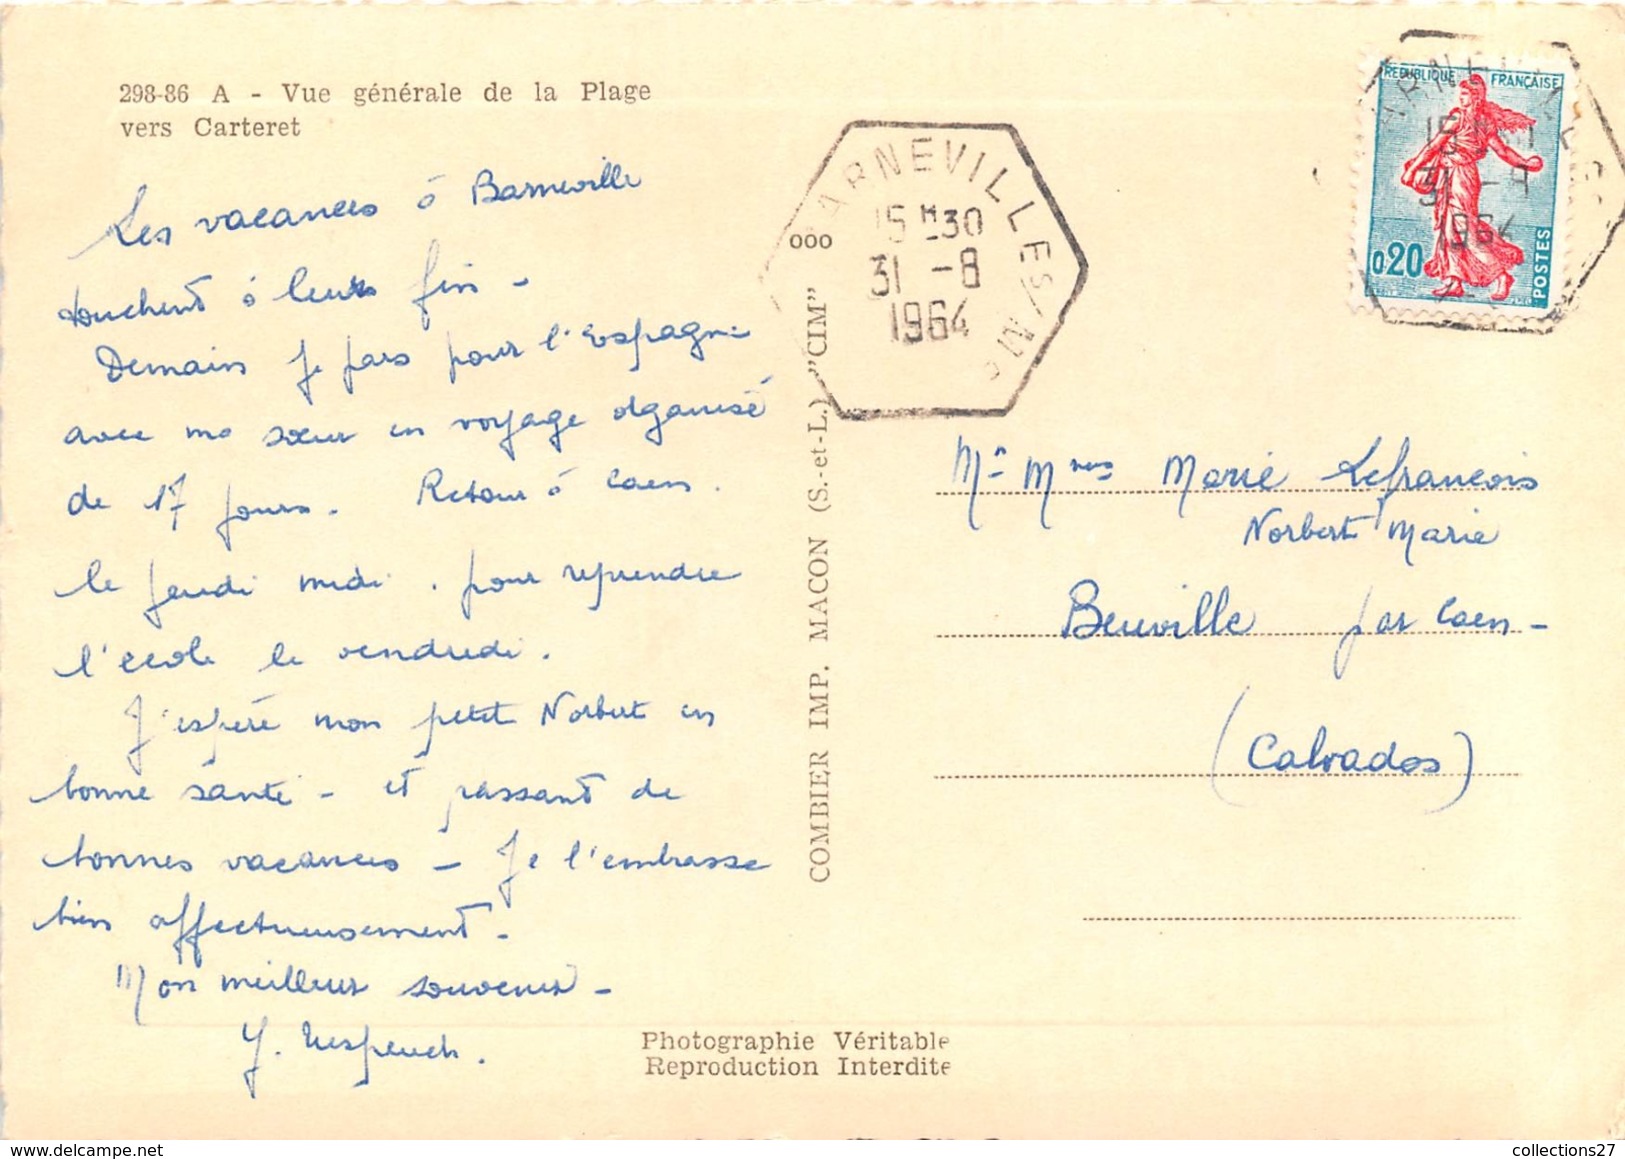 298-86 A - Vue générale de la Plage
vers Carteret
Les vacances à Barneville
touchent à leurs fin -
Demain je pars pour l'Espagne
avec ma sœur en voyage organisé
de 17 jours. Retour à Caen.
le jeudi midi. pour reprendre
l'école le vendredi.
J'espère mon petit Norbert en
bonne santé - et passant de
bonnes vacances - Je l'embrasse
bien affectueusement -
Mon meilleur souvenir -
Y.
Photographie Véritable
Reproduction Interdite
COMBIER IMP. MACON (S.-et-L.) "CIM"
ARNEVILLE S/ M
000
15 H 30
31 - 8
1964
REPUBLIQUE FRANÇAISE
0,20
POSTES
31 - 8
1964
Mr Mmes Marie Lefrancois
Norbert Marie
Beuville par Caen -
(Calvados)
collections27